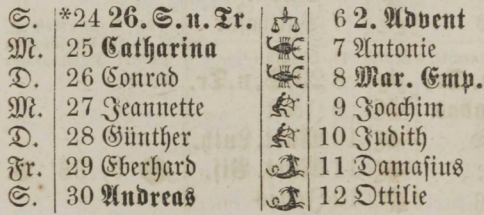 S. *24 26. S. n. Tr. 6 2. Advent
M. 25 Catharina 7 Antonie
D. 26 Conrad 8 Mar. Emp.
M. 27 Jeannette 9 Joachim
D. 28 Günther 10 Judith
Fr. 29 Eberhard 11 Damasius
S. 30 Andreas 12 Ottilie